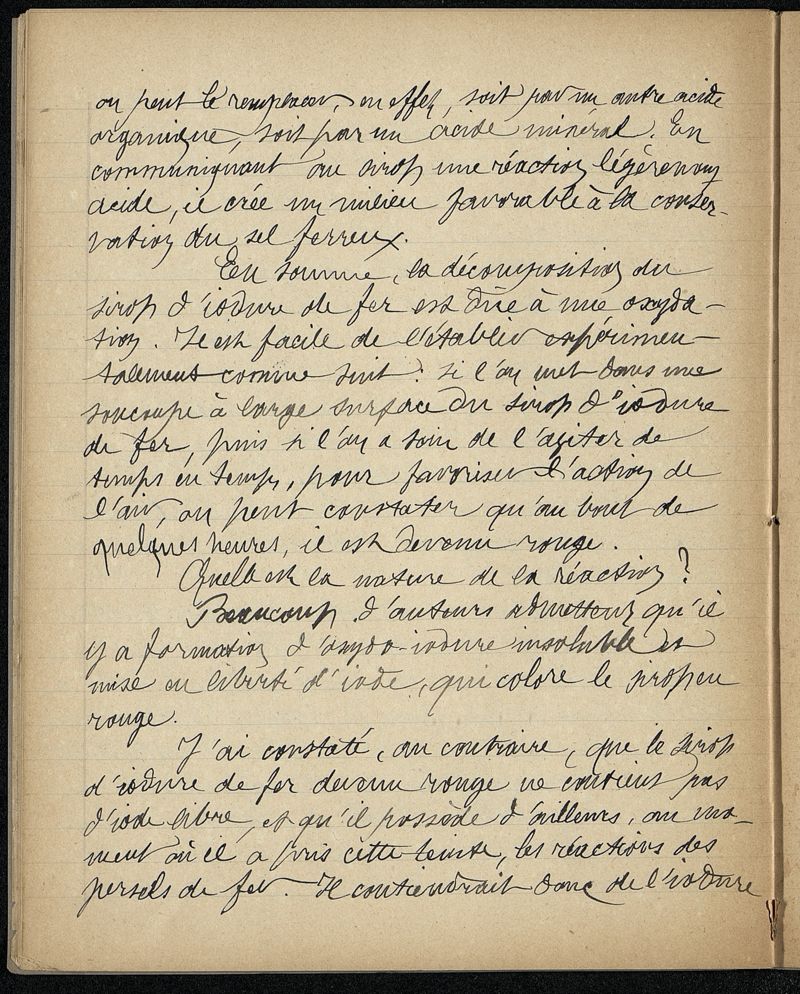 on peut le remplacer, en effet, soit par un autre acide
organique, soit par un acide minéral. En
communiquant au sirop une réaction légèrement
acide, il crée un milieu favorable à la conser-
vation du sel ferreux.
En somme, la décomposition du
sirop d'iodure de fer est dûe à une oxyda-
tion. Il est facile de l'établir expérimen-
talement comme suit : si l'on met dans une
soucoupe à large surface du sirop d'iodure
de fer, puis si l'on a soin de l'agiter de
temps en temps, pour favoriser l'action de
l'air, on peut constater qu'au bout de
quelques heures, il est devenu rouge.
Quelle est la nature de la réaction ?
Beaucoup d'auteurs admettent qu'il
y a formation d'oxydo-iodure insoluble et
mise en liberté d'iode, qui colore le sirop en
rouge.
J'ai constaté, au contraire, que le sirop
d'iodure de fer devenu rouge ne contient pas
d'iode libre, et qu'il possède d'ailleurs, au mo-
ment où il a pris cette teinte, les réactions des
persels de fer. Il contiendrait donc de l'iodure